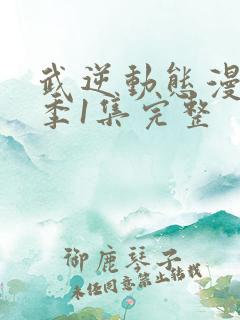 武逆動態漫
季1集完整
御鹿琴子
未经同意禁止转载